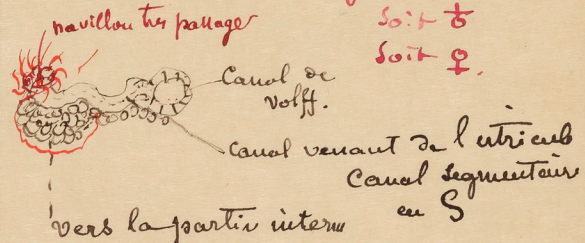 pavillon très passager
soit ♁
soit ♀.
Canal de
Volff.
Canal venant de l'utricule
Canal segmentaire
en S
vers la partie interne